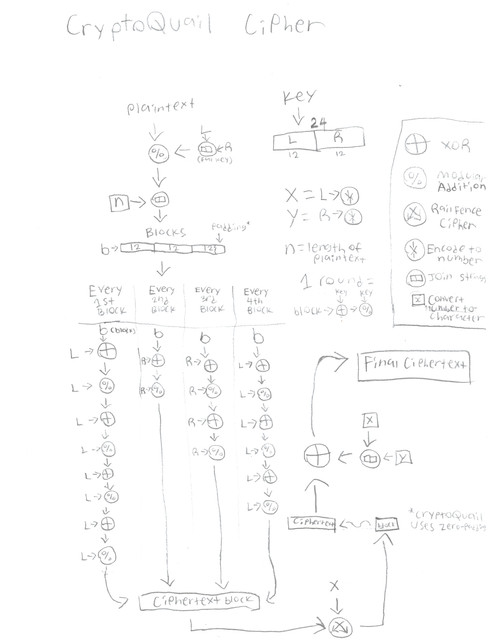 CryptoQuail Cipher
plaintext
key
24
L R
12 12
L
% ← R
(full key)
n
Blocks
padding*
b→ 12 12 12
X = L→
Y = R→
n = length of plaintext
1 round =
key key
block→
XOR
% Modular Addition
Railfence Cipher
Encode to number
Join strings
x Convert number to character
Every 1st Block
Every 2nd Block
Every 3rd Block
Every 4th Block
b (block) b b b
L→ R→ R→ L→
L→ % R→ % R→ % L→ %
L→ R→ L→
L→ % R→ % L→ %
L→ L→
L→ % L→ %
L→
L→ %
Final Ciphertext
X
Y
Ciphertext
block
*CryptoQuail uses zero-
Ciphertext block
X